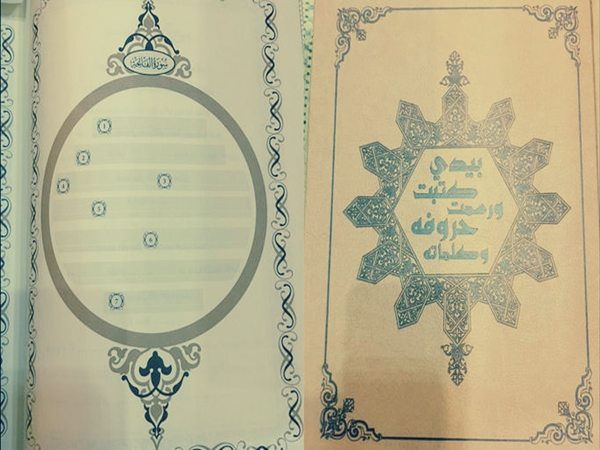 سورة الفاتحة
1
2
3
4
5
6
7
بيدي
كتبت
ورسمت
حروفه
وكلماته